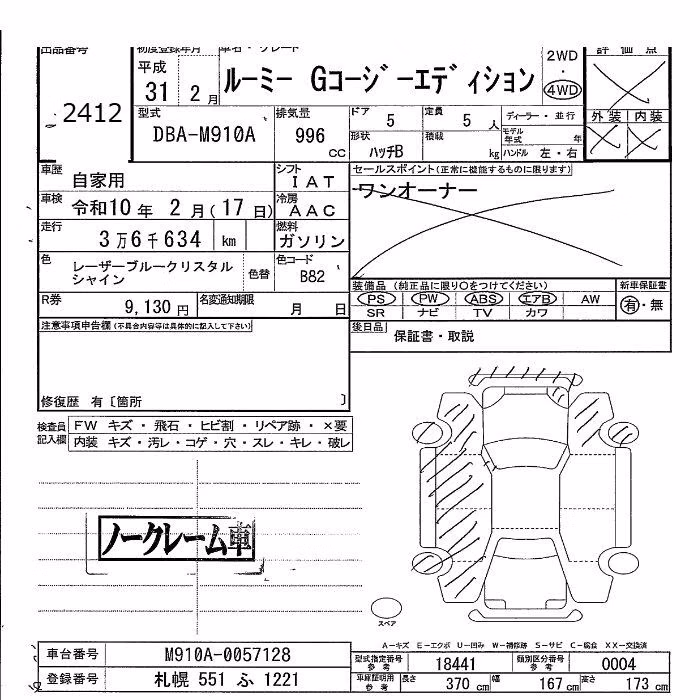 出品番号 初度登録年月 車名・グレード 評価点
2412 平成 31 2 月 ルーミー Gコージーエディション 2WD ・ 4WD
外装 内装
型式 DBA-M910A 排気量 996 CC ドア 5 定員 5 人 ディーラー・並行
形状 ハッチB 積載 kg モデル年式 年 ハンドル 左・右
車歴 自家用 シフト IAT セールスポイント(正常に機能するものに限ります)
ワンオーナー
車検 令和10 年 2 月 (17 日) 冷房 AAC
走行 3万6千634 km 燃料 ガソリン
色 レーザーブルークリスタル 色替 色コード B82
シャイン
装備品 (純正品に限り○をつけてください) 新車保証書
PS PW ABS エアB AW 有・無
SR ナビ TV カワ
R券 9,130 円 名変通知期限 月 日
注意事項申告欄(不具合内容等は具体的に記入して下さい) 後日品 保証書・取説
修復歴 有〔箇所 〕
検査員記入欄 FW キズ・飛石・ヒビ割・リペア跡・×要
内装 キズ・汚レ・コゲ・穴・スレ・キレ・破レ
ノークレーム車
スペア
A-キズ E-エクボ U-凹み W-補修跡 S-サビ C-腐食 XX-交換済
車台番号 M910A-0057128 型式指定番号 参考 18441 類別区分番号 参考 0004
登録番号 札幌 551 ふ 1221 車庫証明用 参考 長さ 370 cm 幅 167 cm 高さ 173 cm